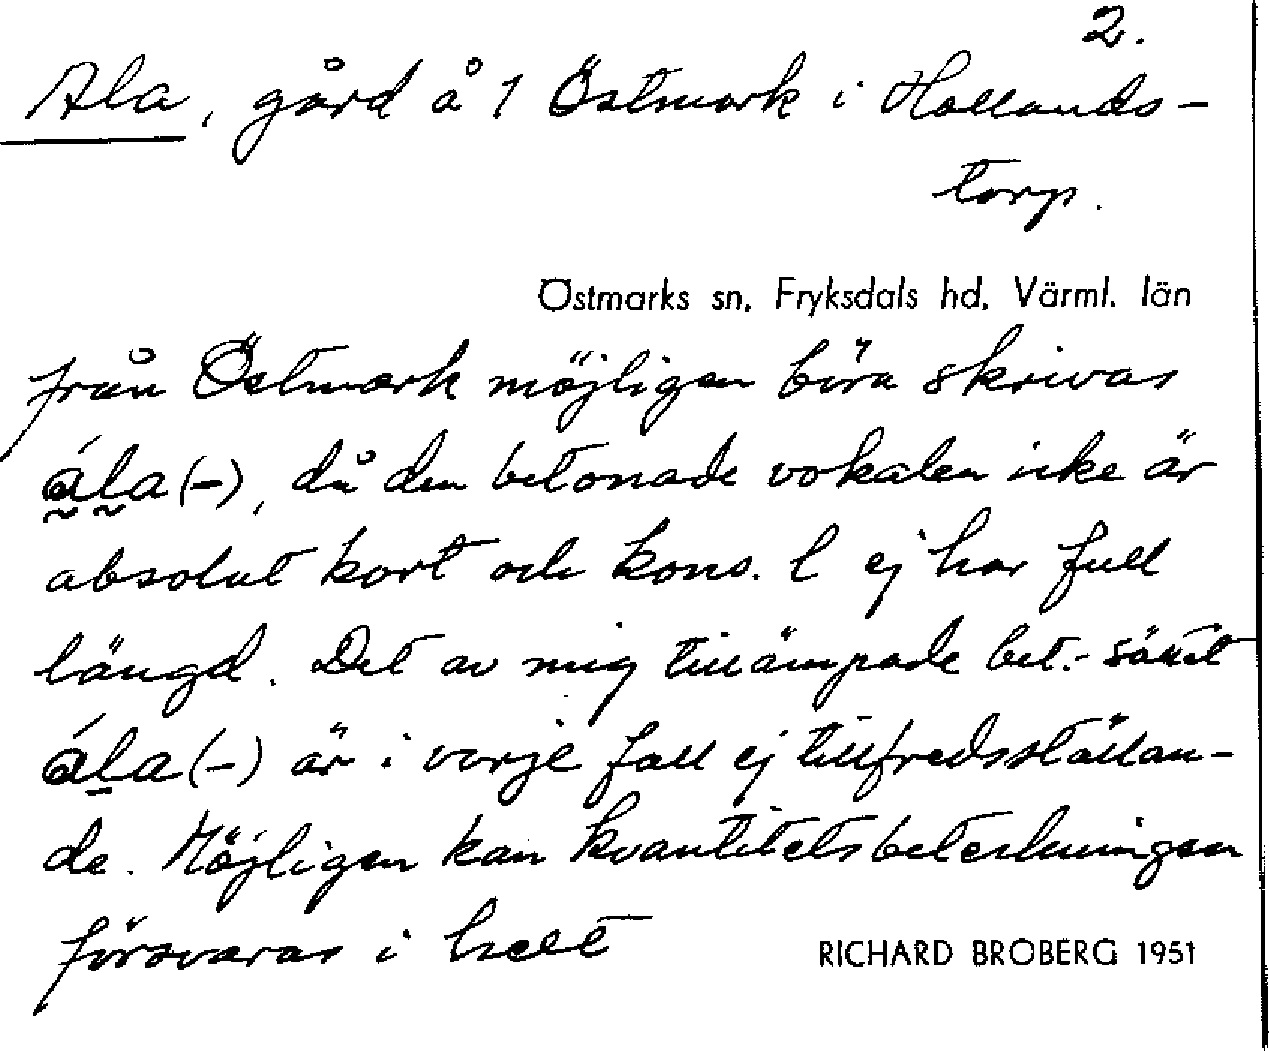 2.
Ala, gård å 1 Östmark i Hollands-
torp.
Östmarks sn, Fryksdals hd, Värml. län
från Östmark möjligen böra skrivas
ála(-), då den betonade vokalen icke är
absolut kort och kons. l ej har full
längd. Det av mig tillämpade bet.-sättet
ála(-) är i varje fall ej tillfredsställan-
de. Möjligen kan kvantitetsbeteckningen
försvaras i helt
RICHARD BROBERG 1951